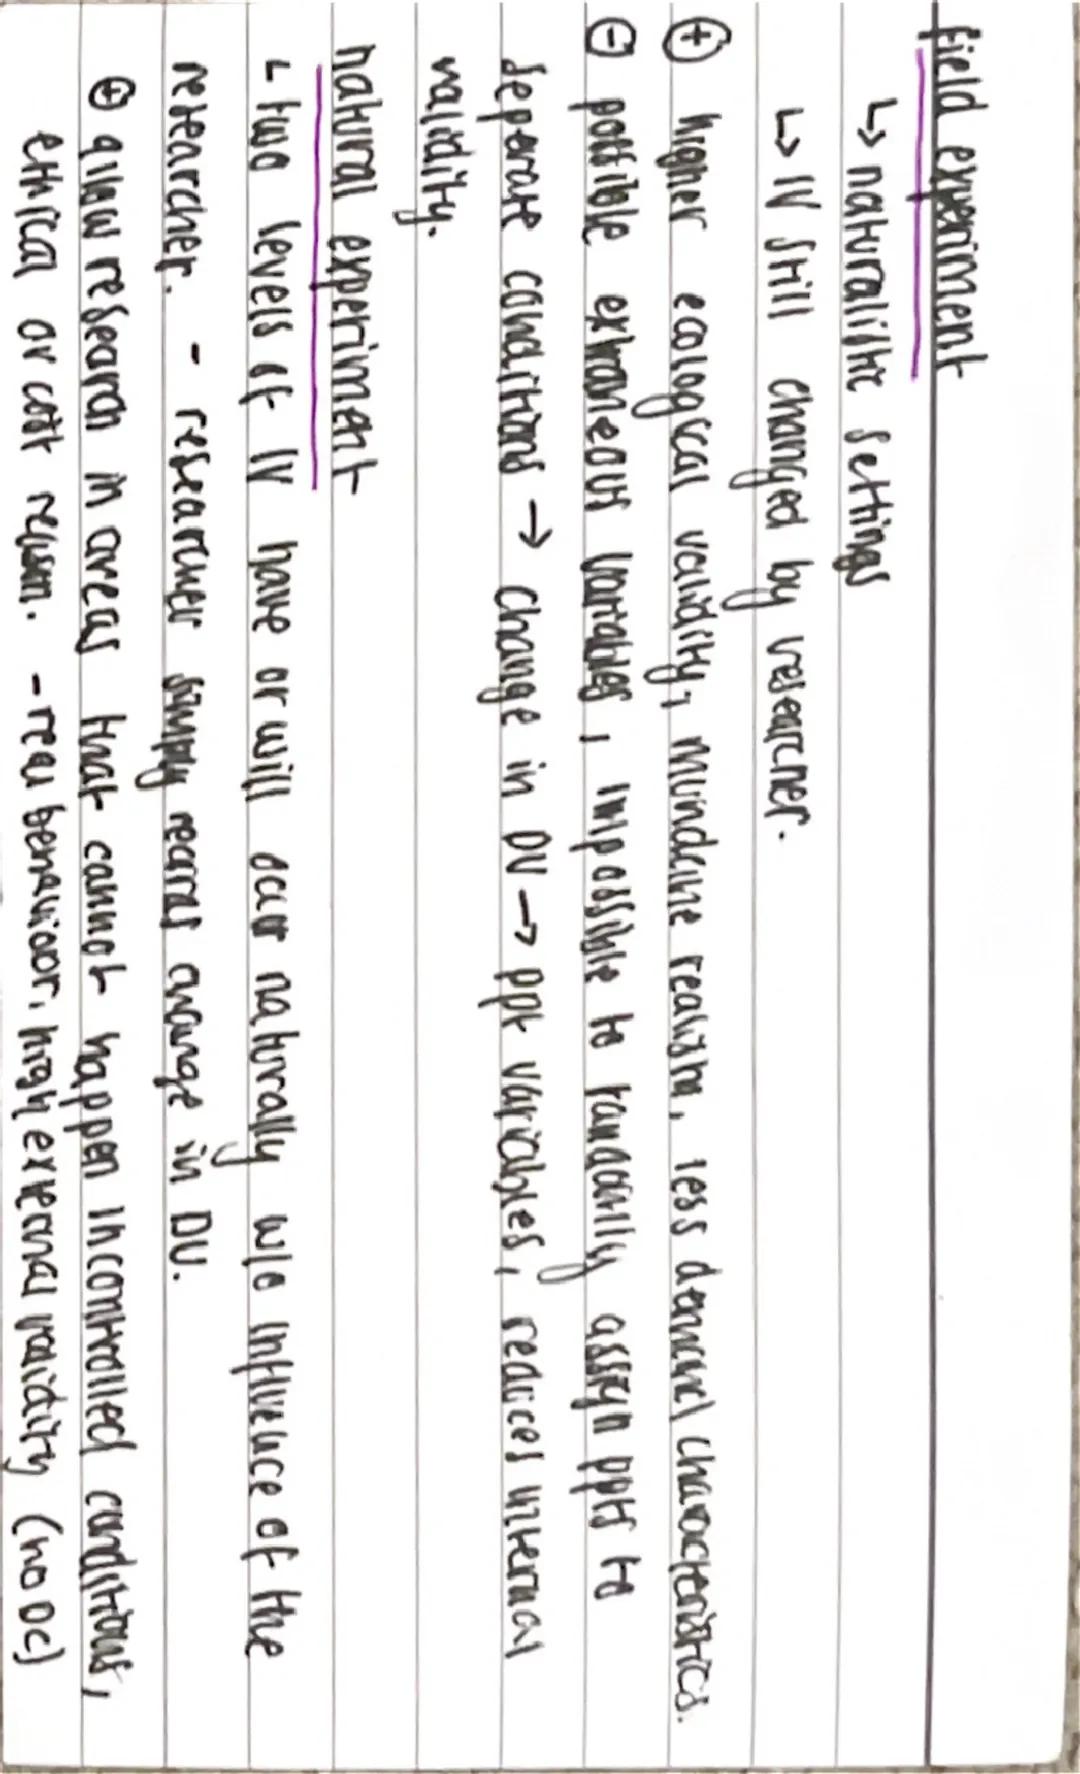 field experiment
↳ naturalistic settings
↳ IV still changed by researcher.
⊕ higher ecological validity, mundane realism, less demand characteristics.
⊖ possible extraneous variables, impossible to randomly assign ppts to
seperate conditions → change in DV → ppt variables, reduces internal
validity.
natural experiment
∟ two levels of IV have or will occur naturally w/o influence of the
researcher. - researcher simply records change in DV.
⊕ allow research in areas that cannot happen in controlled conditions,
ethical or cost reason. - real behaviour, high external validity (no DC)